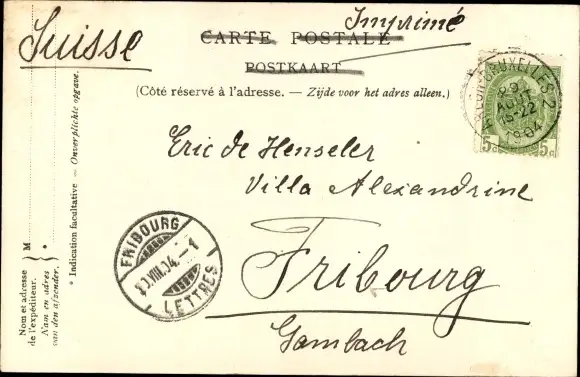 Suisse
Imprimé
CARTE POSTALE
POSTKAART
(Côté réservé à l'adresse. — Zijde voor het adres alleen.)
BRUXELLES 2
9
AOUT
15-22
1904
5c 5c
Eric de Henseler
Villa Alexandrine
Fribourg
Gambach
FRIBOURG
10.VIII.04.-1
LETTRES
* Indication facultative — Onverplichte opgave.
M *
Nom et adresse
de l'expéditeur.
Nam en adres
van den afzender.